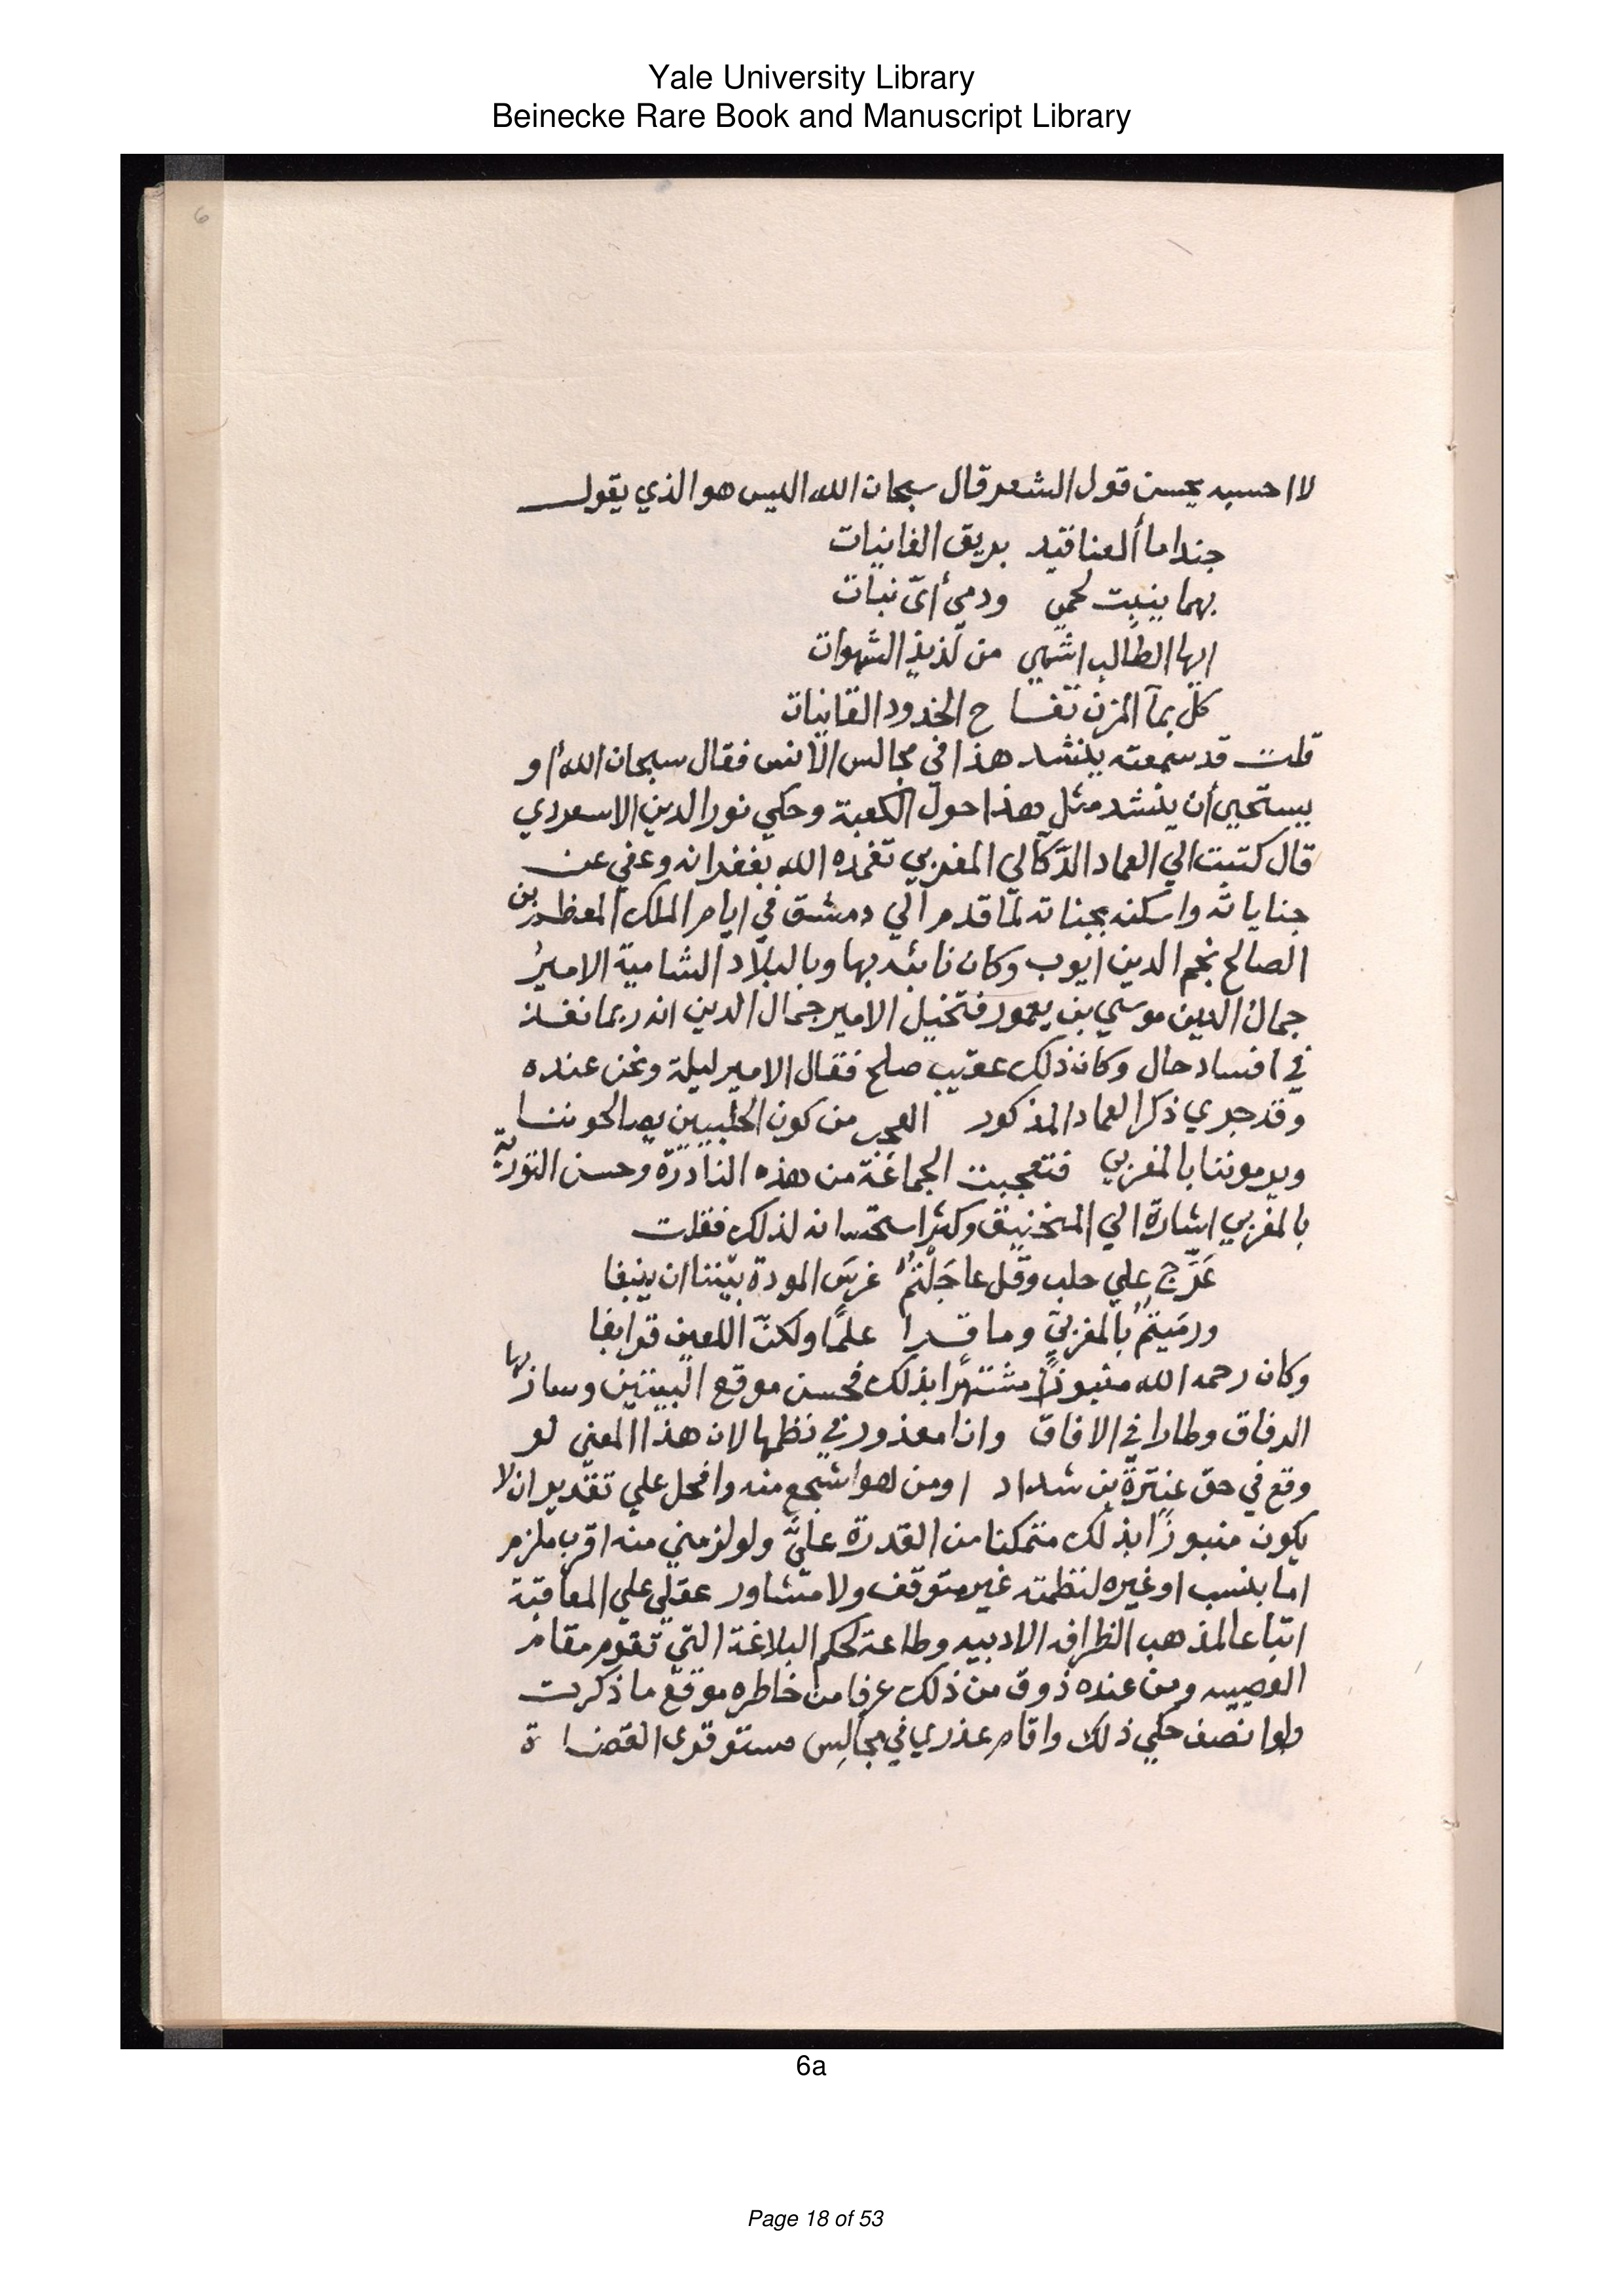 Yale University Library
Beinecke Rare Book and Manuscript Library
6
لا احسبه يحسن قول الشعر قال سبحان الله اليس هو الذي يقول
حبذا ما ألعناقيد بريق الغانيات
بهما ينبت لحمي ودمي أىّ نبات
ايها الطالب اشهي من لذيذ الشهوات
كل بمآ المزن تفا ح الخدود القانيات
قلت قد سمعته ينشد هذا في مجالس الانس فقال سبحان الله أو
يستحيي أن ينشد مثل هذا حول الكعبة وحكي نور الدين الاسعردي
قال كتبت الي العماد الدّكآلي المغربي تغمده الله بغفرانه وعفي عن
جناياته واسكنه بجناته لما قدم الي دمشق في ايام الملك المعظم بن
الصالح نجم الدين ايوب وكان نائبه بها وبالبلاد الشامية الامير
جمال الدين موسي بن يعمور فتخيل الامير جمال الدين انه ربما نفذ
في افساد حال وكان ذلك عقيب صلح فقال الامير ليلة ونحن عنده
وقد جري ذكر العماد المذكور العجب من كون الحلبيين يصالحوننا
ويرموننا بالمغربي فتعجبت الجماعة من هذه النادرة وحسن التورية
بالمغربي اشارة الي المنجنيق وكثر استحسانه لذلك فقلت
عَرّج علي حلب وقل عاجَلْتمُ غرسَ المودة بيننا ان ينبغا
ورمَيتمُ بالمغربيّ وما قرا علمًا ولكنّ اللعين قد ابغا
وكان رحمه الله منبوزًا مشتهرا بذلك فحسن موقع البيتين وسار بها
الرفاق وطارا في الافاق وانا معذور في نظمها لان هذا المعني لو
وقع في حق عنترة بن شداد اومن هو اشجع منه وافحل علي تقدير ان لا
يكون منبوزًا بذلك متمكنا من القدرة عليّ ولو لزمني منه اقرب ملزم
اما بنسب او غيره لنظمته غير متوقف ولا متشاور عقلي علي المعاقبة
اتباعا لمذهب الظرافه الادبيه وطاعة لحكم البلاغة التي تقوم مقام
العصبيه ومن عنده ذوق من ذلك عرفا من خاطره موقع ما ذكرت
ولو انصف حكي ذلك واقام عذري في مجالس مستوقوى القضا ة
6a
Page 18 of 53